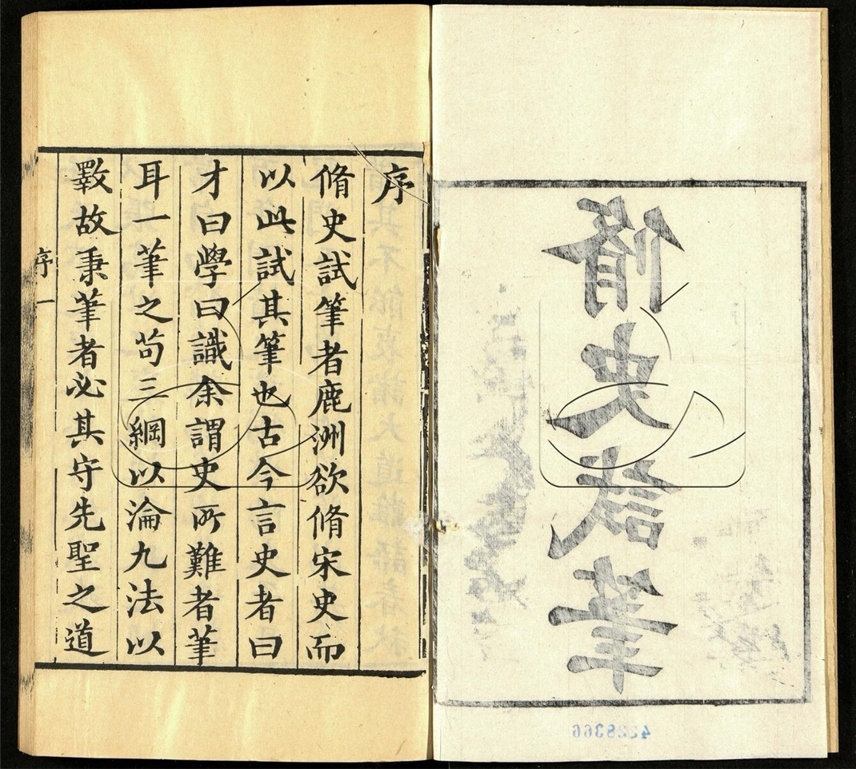 脩史試筆
序
脩史試筆者鹿洲欲脩宋史而
以此試其筆也古今言史者曰
才曰學曰識余謂史所難者筆
耳一筆之苟三綱以淪九法以
斁故秉筆者必其守先聖之道
序 一